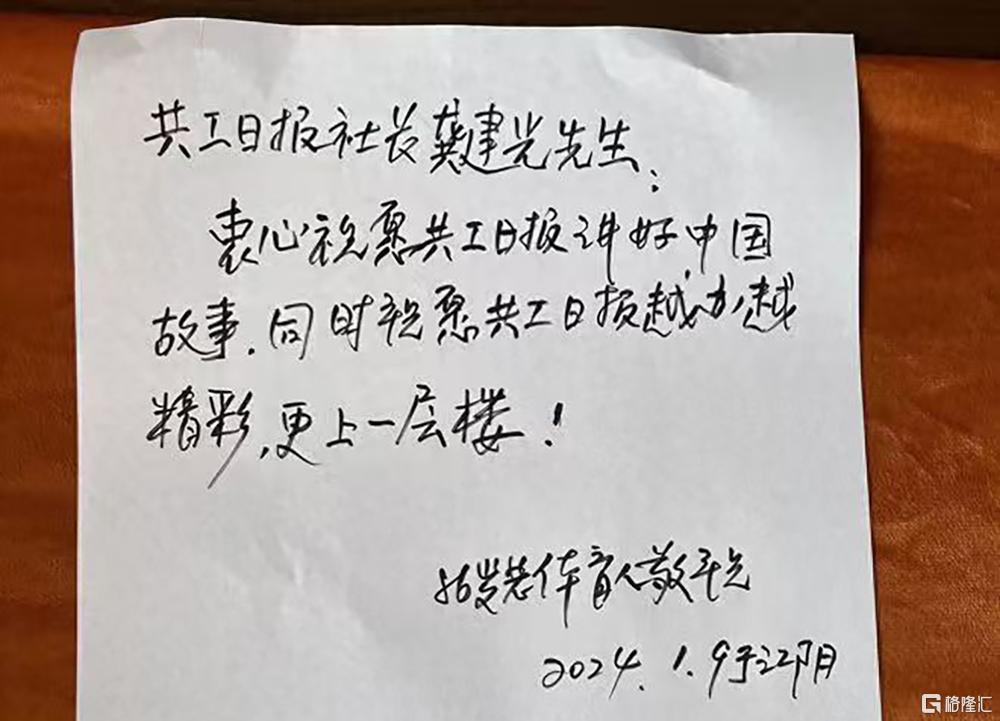 共工日报社长龚建光先生：
衷心祝愿共工日报讲好中国
故事.同时祝愿共工日报越办越
精彩,更上一层楼！
86岁老体育人敬祝
2024.1.9于江阴
格隆汇